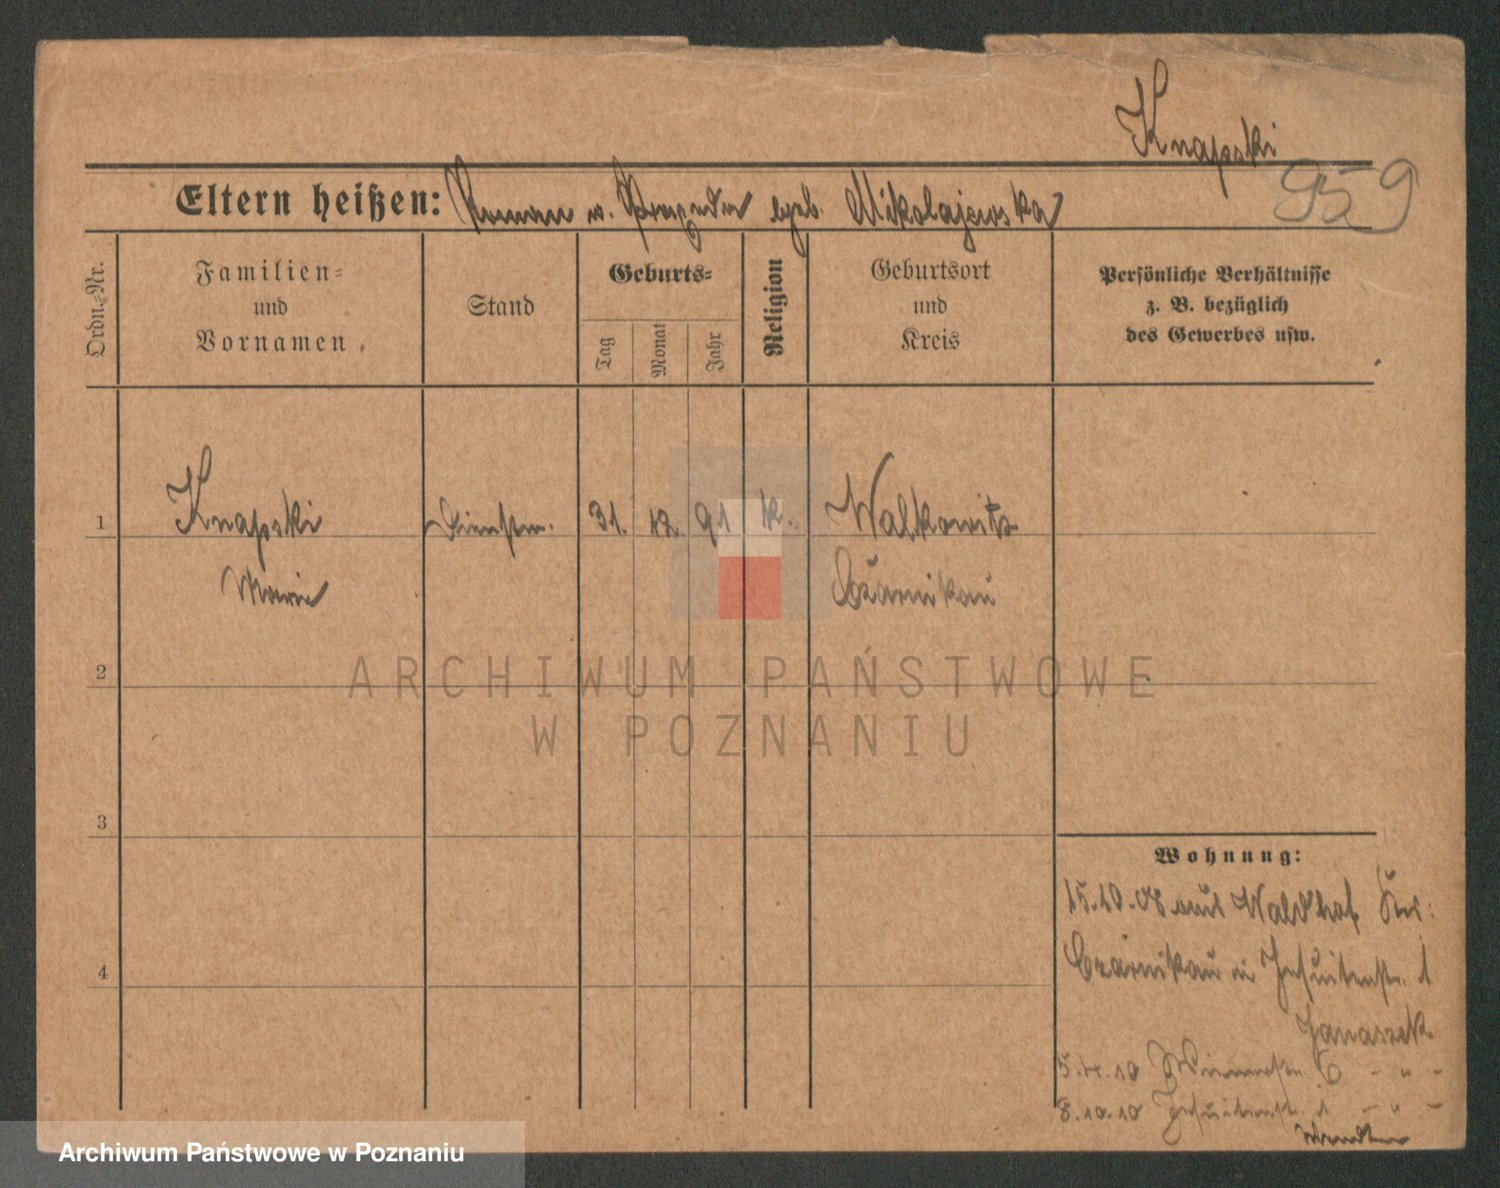 Knapski
959
Eltern heißen: Roman u. Praxeda geb. Mikolajewska
Ordn.-Nr.
Familien-
und
Vornamen
Stand
Geburts-
Tag
Monat
Jahr
Religion
Geburtsort
und
Kreis
Persönliche Verhältnisse
z. B. bezüglich
des Gewerbes usw.
1 Knapski Dienstm. 31. 12. 91 k. Walkowitz
Marie Czarnikau
2
ARCHIWUM PAŃSTWOWE
W POZNANIU
3
4
Wohnung:
15.10.08 aus Waldhof Krs:
Czarnikau in Jesuitenstr. 1
Janaszek
5.4.10 6 - " -
8.10.10 Jesuitenstr. 1 - " -
Archiwum Państwowe w Poznaniu